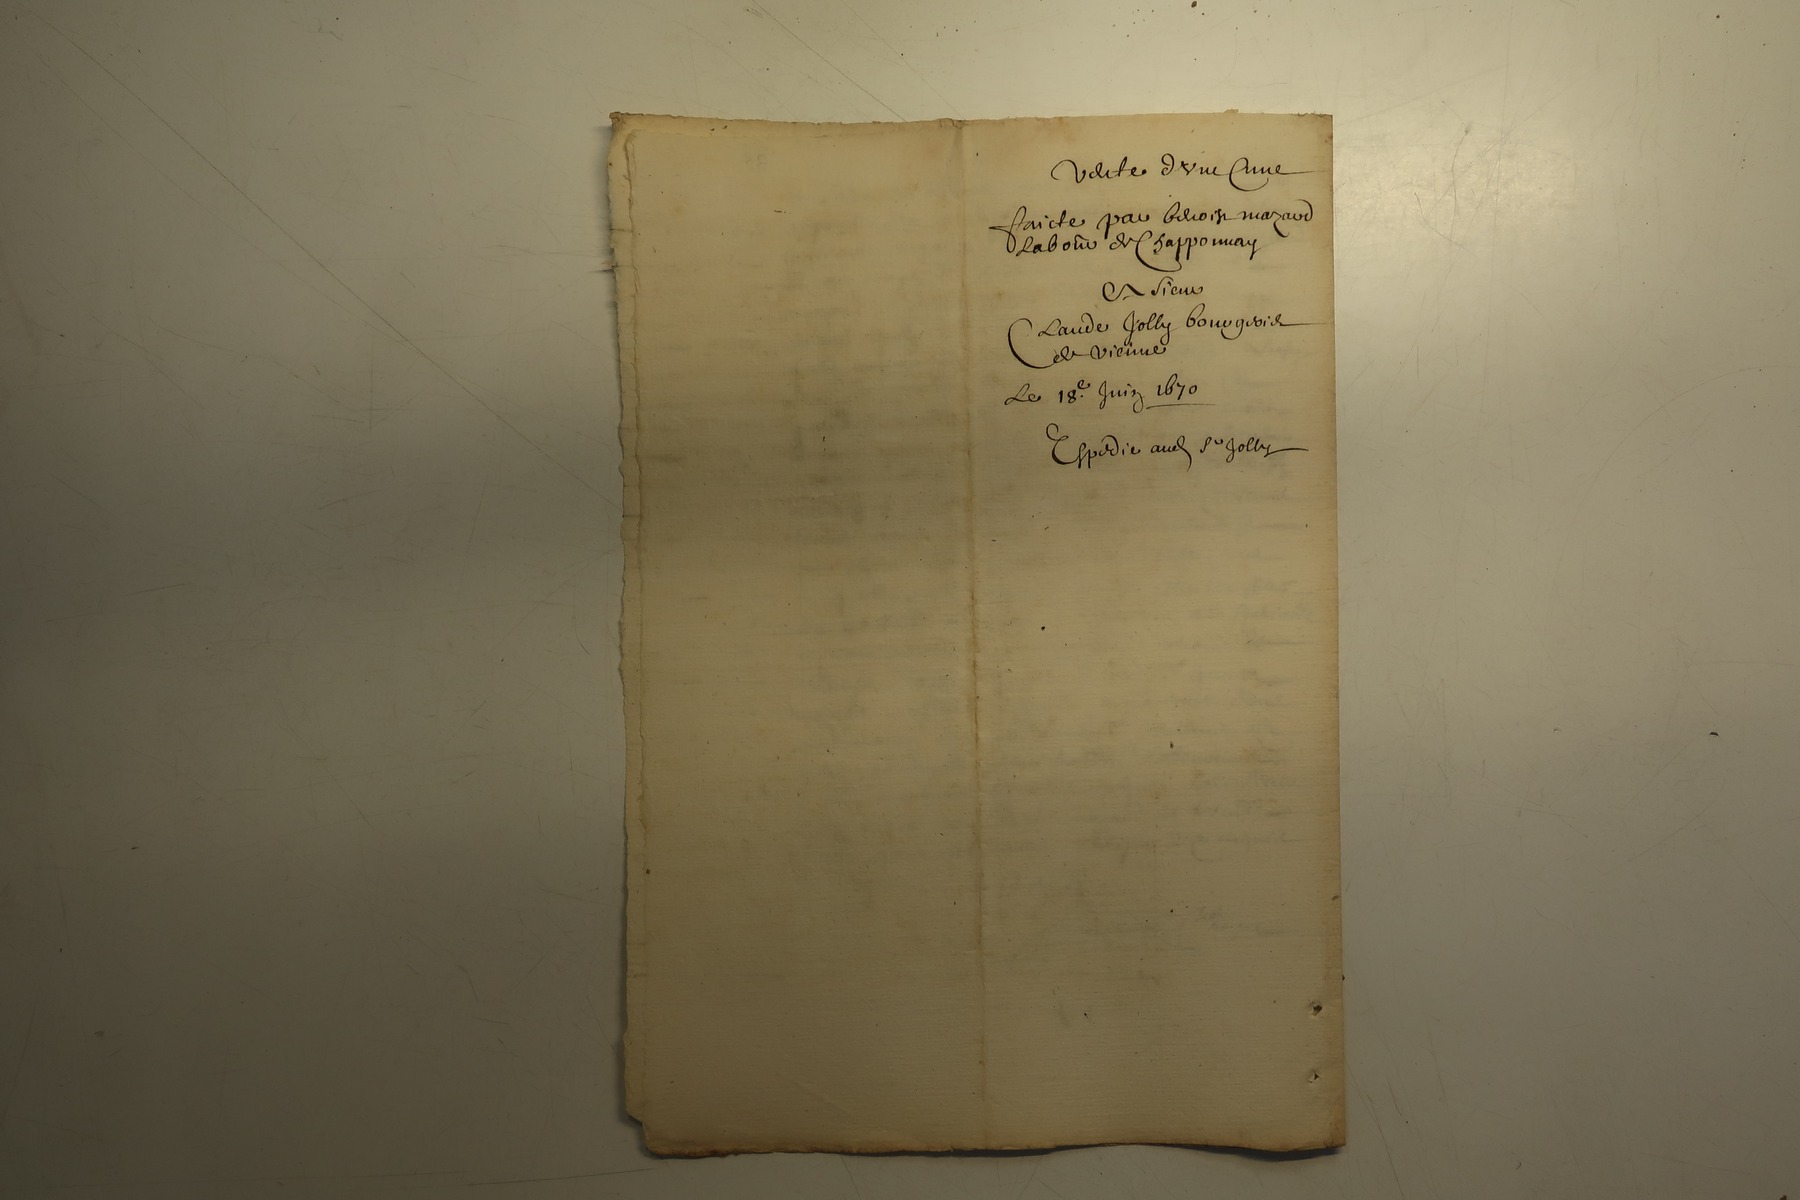 Vente d'vne Cuue
faicte par benoist mazard
labour de Chapponnay
A sieur
Claude Jolly bourgeois
de vienne
Le 18e Juin 1670
Expedie aud sr Jolly